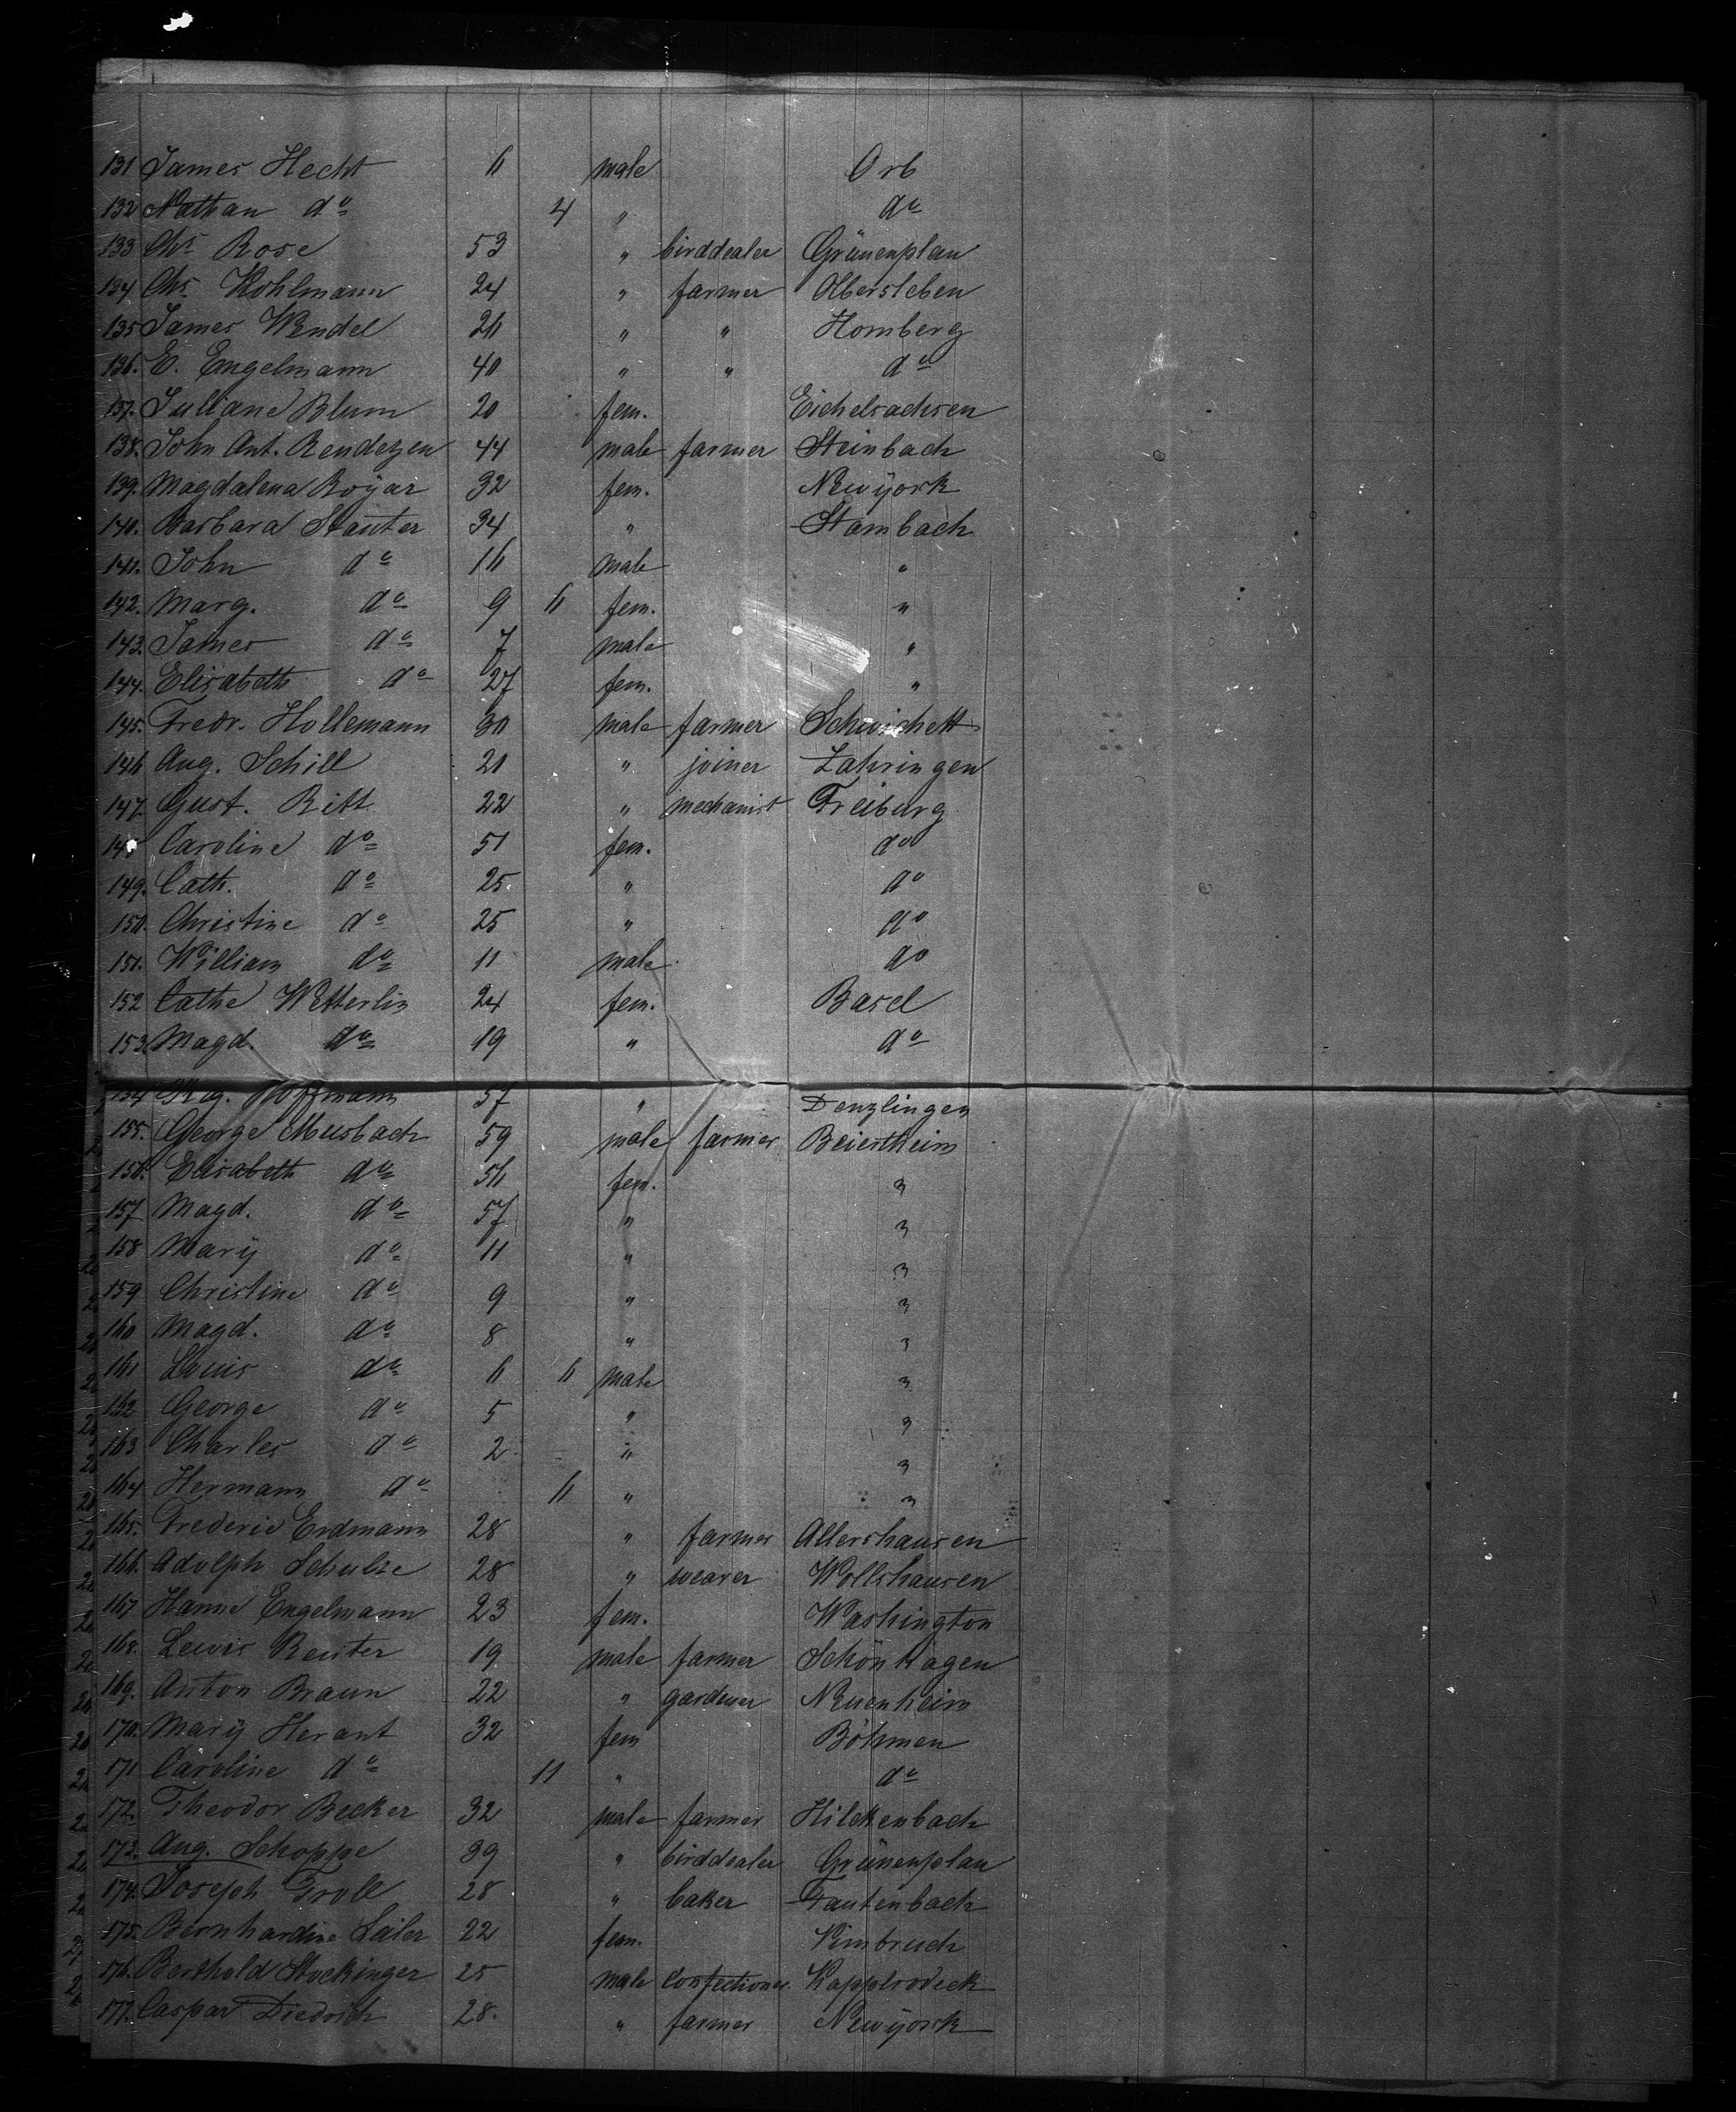 131 James Hecht 6 male Orb
132 Nathan do 4 " do
133 Chr. Rose 53 " birddealer Grünenplan
134 Chr. Kohlmann 24 " farmer Olbersleben
135 James Wendel 26 " " Homberg
136. E. Engelmann 40 " " do
137. Juliane Blum 20 fem. Eichelsachsen
138. John Ant. Rendezen 44 male farmer Steinbach
139. Magdalena Royar 32 fem. Newÿork
140. Barbara Stauter 34 " Stambach
141. John do 16 male "
142. Marg. do 9 6 fem. "
143. James do 7 male "
144. Elisabeth do 27 fem. "
145. Fredr. Hollemann 30 male farmer
146 Aug. Schill 21 " joiner Zahringen
147. Gust. Ritt 22 " mechanist Freiburg
148 Caroline do 51 fem. do
149. Cath. do 25. " do
150. Christine do 25 " do
151. William do 11 male do
152 Cathe Wetterlin 24 fem. Basel
153. Magd. do 19 " do
154 Hoffmann 57 " Denzlingen
155. George Musbach 59 male farmer Beiertheim
156. Elisabeth do 56 fem. "
157 Magd. do 57 " "
158 Marÿ do 11 " "
159 Christine do 9 " "
160 Magd. do 8 " "
161 Louis do 6 6 male "
162 George do 5 " "
163 Charles do 2 " "
164 Hermann do 6 " "
165. Frederic Erdmann 28 " farmer Allershausen
166. Adolph Schulze 28 " weaver Wollshausen
167 Hanne Engelmann 23 fem. Washington
168. Lewis Reuter 19 male farmer Schönhagen
169. Anton Braun 22 " gardener Neuenheim
170. Marÿ Herant 32 fem Böhmen
171 Caroline do 11 " do
172. Theodor Becker 32 male farmer Hilckenbach
173. Aug. Schoppe 39 " birddealer Grünenplan
174. Joseph Troll 28 " baker Fautenbach
175. Bernhardine Seiler 22 fem. Vimbruch
176. Berthold Stockinger 25 male Confectioner Kapplrodeck
177. Caspar Diedrich 28. " farmer Newÿork